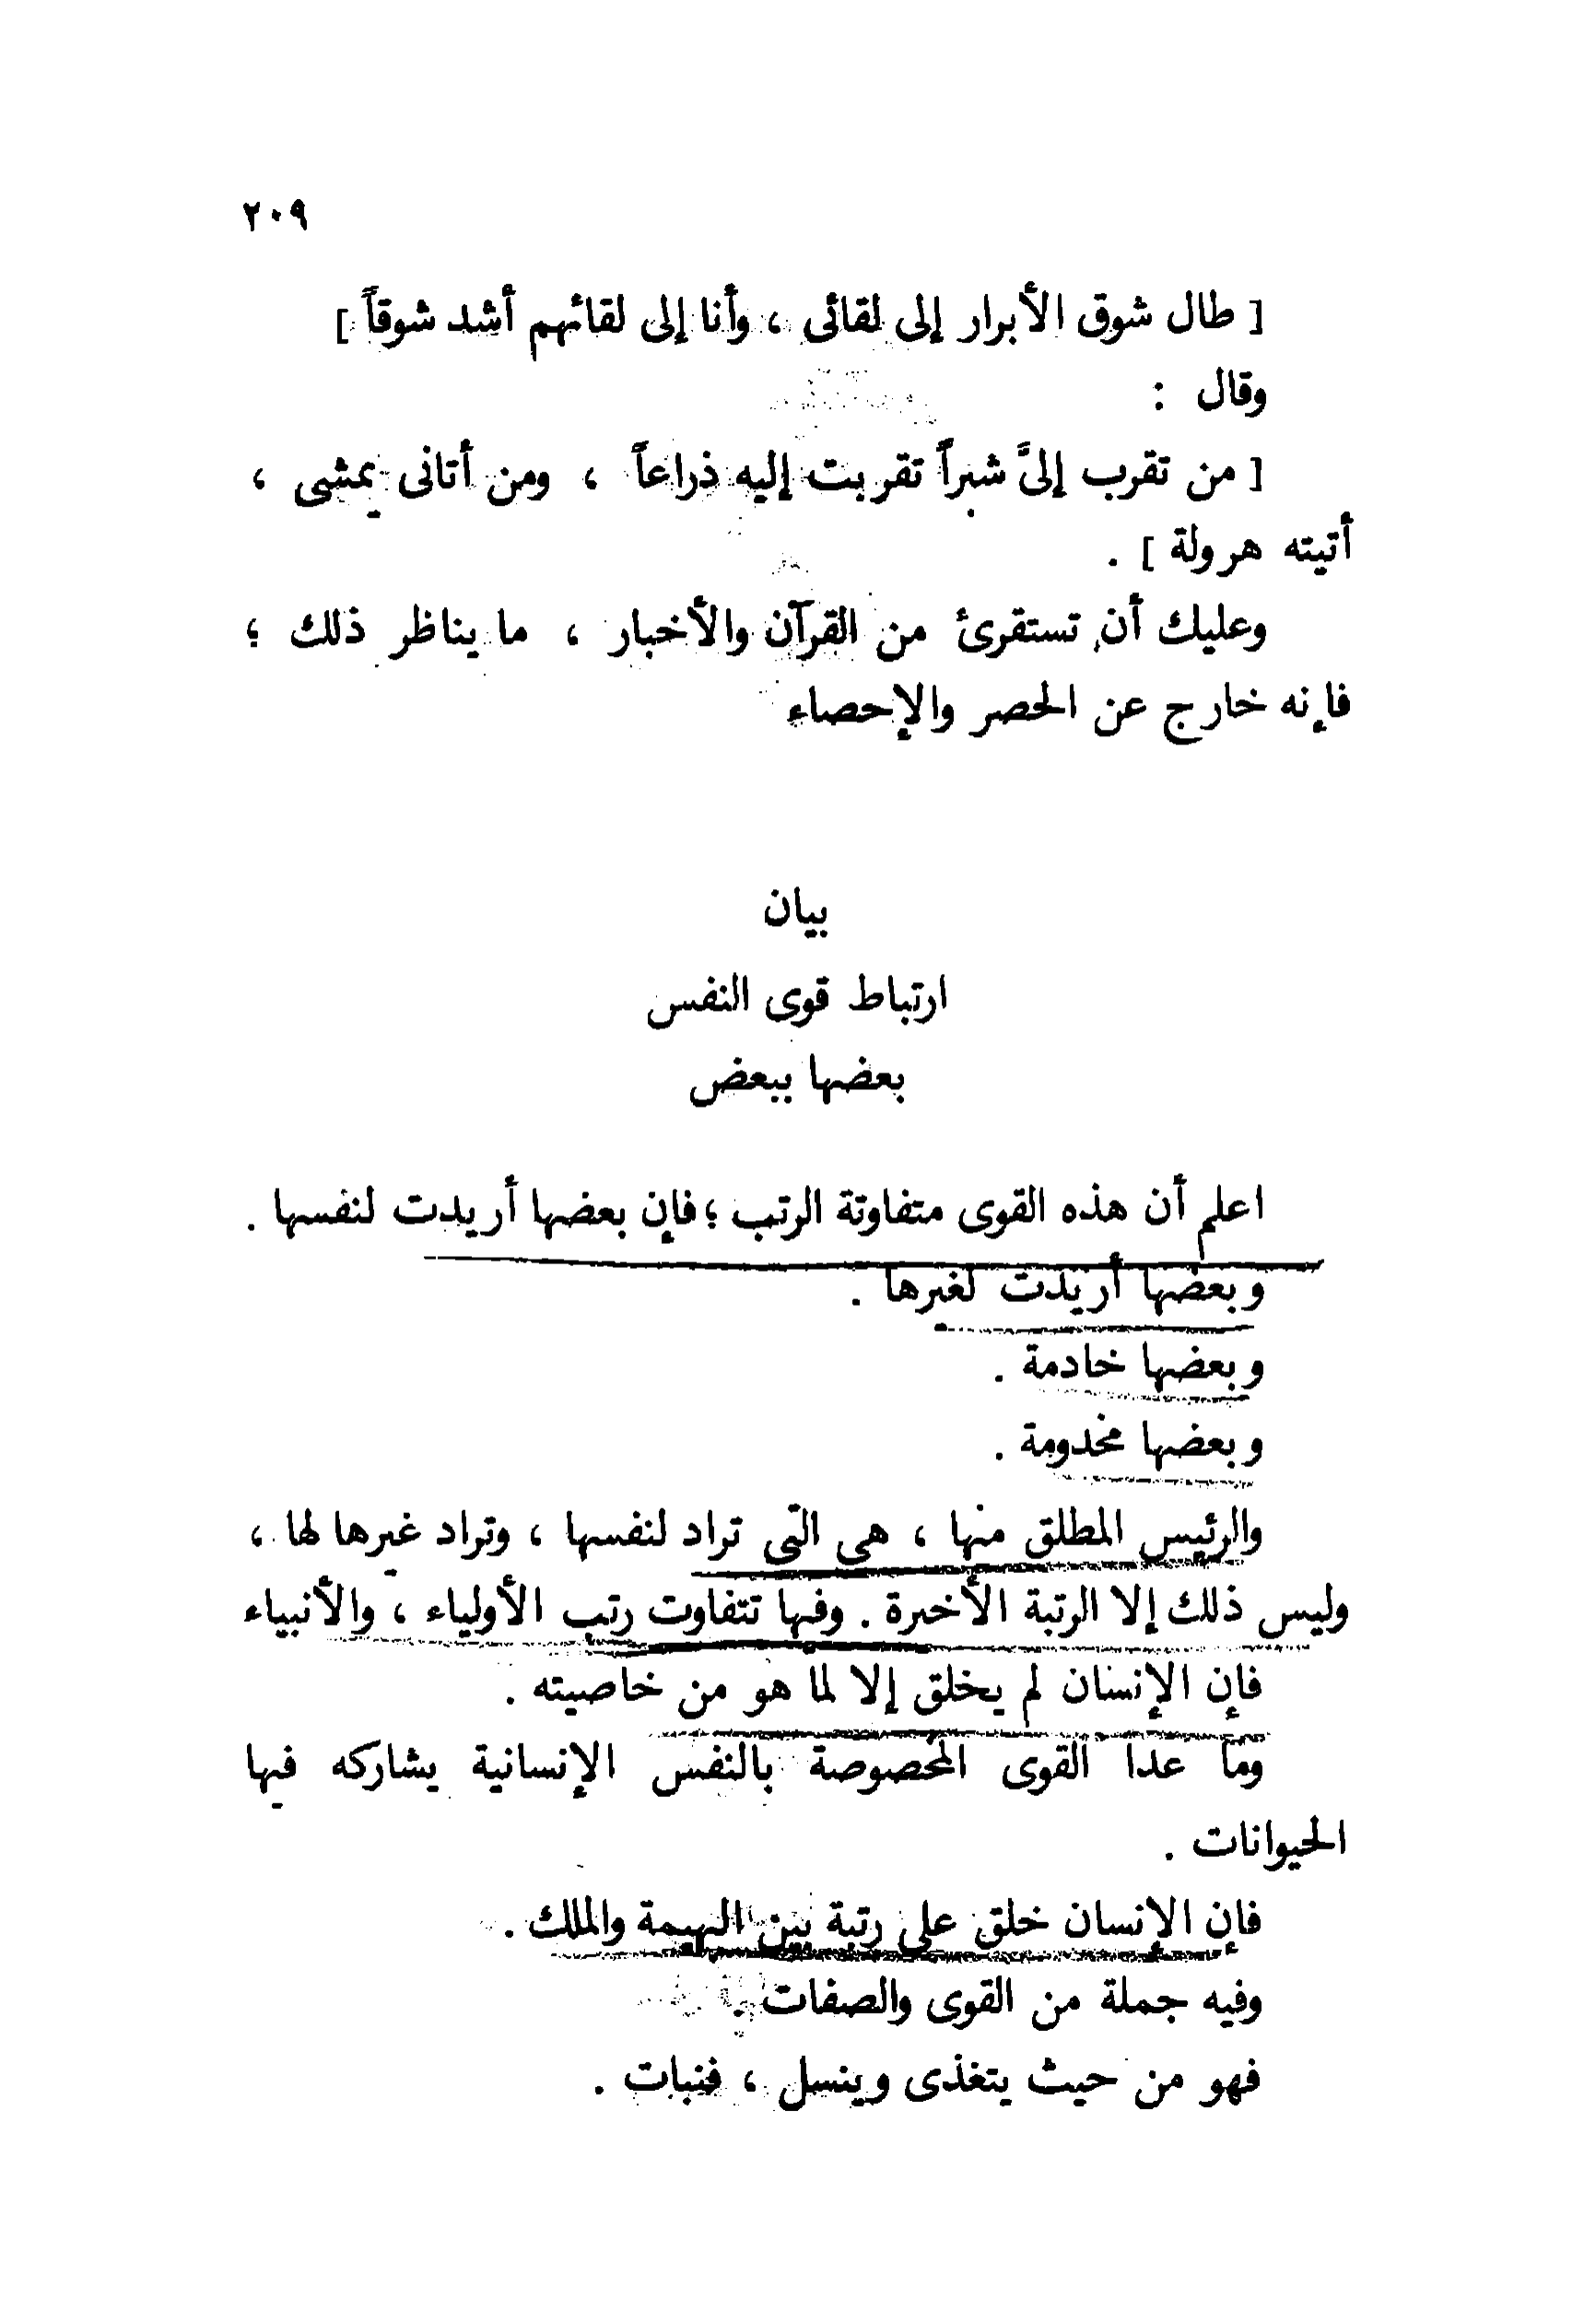 ٢٠٩
[ طال شوق الأبرار إلى لقائى ، وأنا إلى لقائهم أشد شوقاً ]
وقال :
[ من تقرب إلىَّ شبراً تقربت إليه ذراعاً ، ومن أتانى يمشى ،
أتيته هرولة ] .
وعليك أن تستقرئ من القرآن والأخبار ، ما يناظر ذلك ؛
فإنه خارج عن الحصر والإحصاء
بيان
ارتباط قوى النفس
بعضها ببعض
اعلم أن هذه القوى متفاوتة الرتب ؛ فإن بعضها أريدت لنفسها .
وبعضها أريدت لغيرها .
وبعضها خادمة .
وبعضها مخدومة .
والرئيس المطلق منها ، هى التى تراد لنفسها ، وتراد غيرها لها ،
وليس ذلك إلا الرتبة الأخيرة . وفيها تتفاوت رتب الأولياء ، والأنبياء
فإن الإنسان لم يخلق إلا لما هو من خاصيته .
وما عدا القوى المخصوصة بالنفس الإنسانية يشاركه فيها
الحيوانات .
فإن الإنسان خلق على رتبة بين البهيمة والملك .
وفيه جملة من القوى والصفات
فهو من حيث يتغذى وينسل ، فنبات .